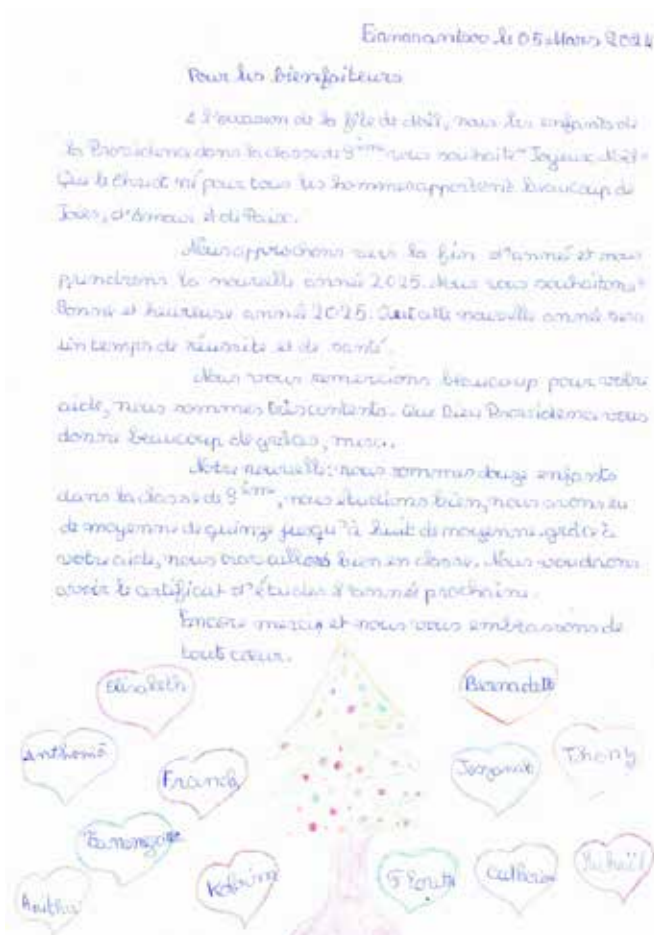 le 05 Mars 2024
Pour les bienfaiteurs
A l'occasion de la fête de Noël, nous les enfants de
la Providence dans la classe de 8ème vous souhaite "Joyeux Noël"
Que le Christ né pour tous les hommes apportent beaucoup de
Joies, d'Amour et de Paix.
Nous approchons vers la fin d'anneé et nous
prendrons la nouvelle anneé 2025. Nous vous souhaitons "
Bonne et heureuse anneé 2025. Que cette nouvelle anneé sera
un temps de réussite et de santé.
Nous vous remercions beaucoup pour votre
aide, nous sommes très contents. Que Dieu Providence vous
donne beaucoup de grâces, merci.
Notre nouvelle: nous sommes douze enfants
dans la classe de 8ème, nous étudions bien, nous avons eu
de moyenne de quinze jusqu'à huit de moyenne grâce à
votre aide, nous travaillons bien en classe. Nous voudrons
avoir le certificat d'études l'anneé prochaine.
Encore merci, et nous vous embrassons de
tout cœur.
Elisabeth
Bernadette
Franck
Thony
Catherine